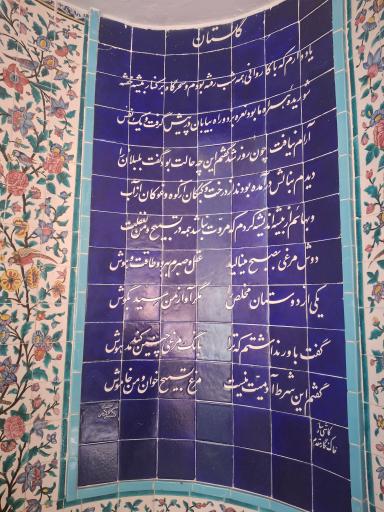 گلستان
یاد دارم که با کاروانی همه شب رفته بودم و سحرگاه بر کنار بیشه خفته
شوریده‌ای همراه ما بود نعره‌ای بزد و راه بیابان در پیش گرفت و یک نفس
آرام نیافت چون روز شد گفتم این چه حالت بود گفت بلبلان را
دیدم بنالش درآمده بودند از درخت و کبکان از کوه و غوکان از آب
و بهائم از بیشه اندیشه کردم که مروت نباشد همه در تسبیح و من بغفلت
دوش مرغی بصبح مینالید عقل و صبرم ببرد و طاقت و هوش
یکی از دوستان مخلص را مگر آواز من رسید بگوش
گفت باور نداشتم که ترا بانگ مرغی چنین کند مدهوش
گفتم این شرط آدمیت نیست مرغ تسبیح خوان و من خاموش